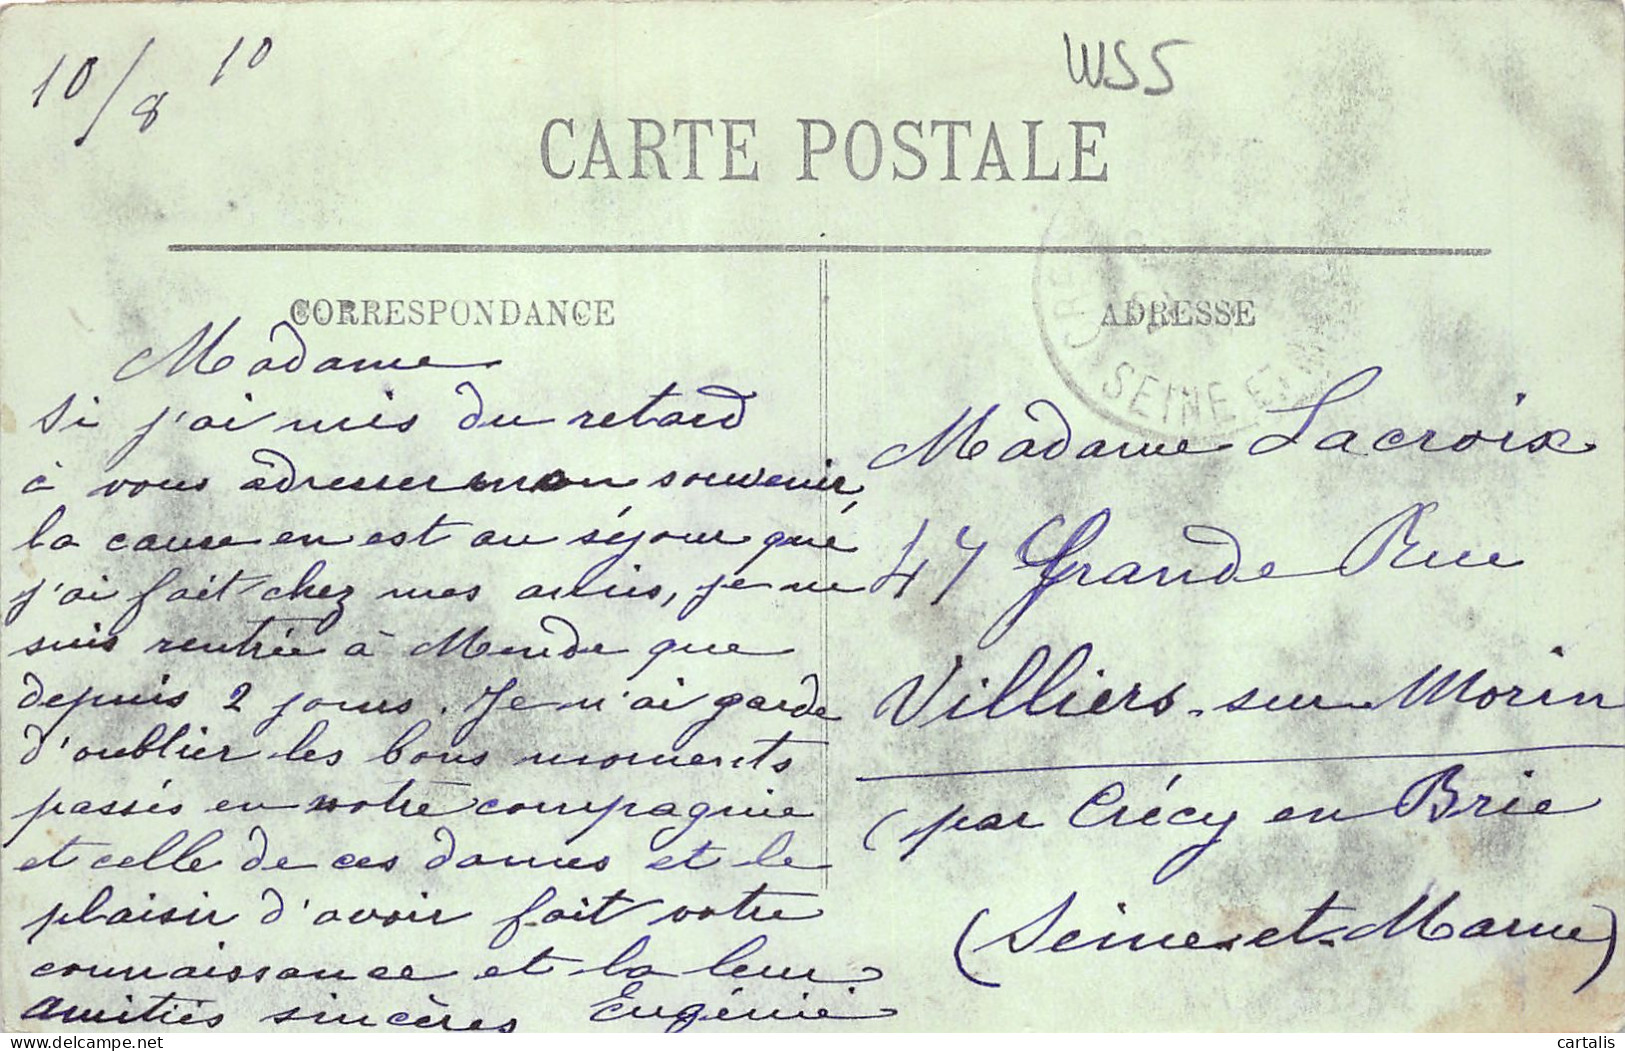 10/8 10
WS5
CARTE POSTALE
CORRESPONDANCE
Madame
Si j'ai mis du retard
à vous adresser mon souvenir,
la cause en est au séjour qué
j'ai fait chez mes amis, je ne
suis rentrée à Mende que
depuis 2 jours. Je n'ai garde
d'oublier les bons moments
passés en votre compagnie
et celle de ces dames et le
plaisir d'avoir fait votre
connaissance et la leur
amitiés sincères Eugénie
ADRESSE
SEINE ET
Madame Lacroix
47 Grande Rue
Villiers-sur-Morin
(par Crécy en Brie
(Seine-et-Marne)
delcampe.net
cartalis